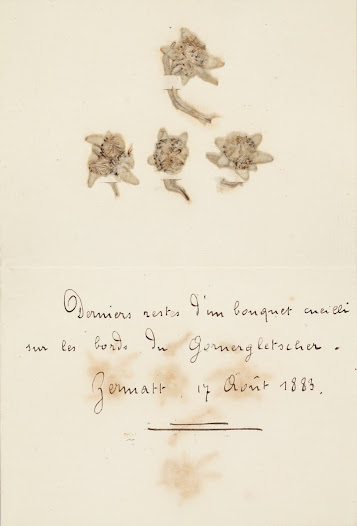 Derniers restes d'un bouquet cueilli
sur les bords du Gornergletscher.
Zermatt, 17 Août 1883.